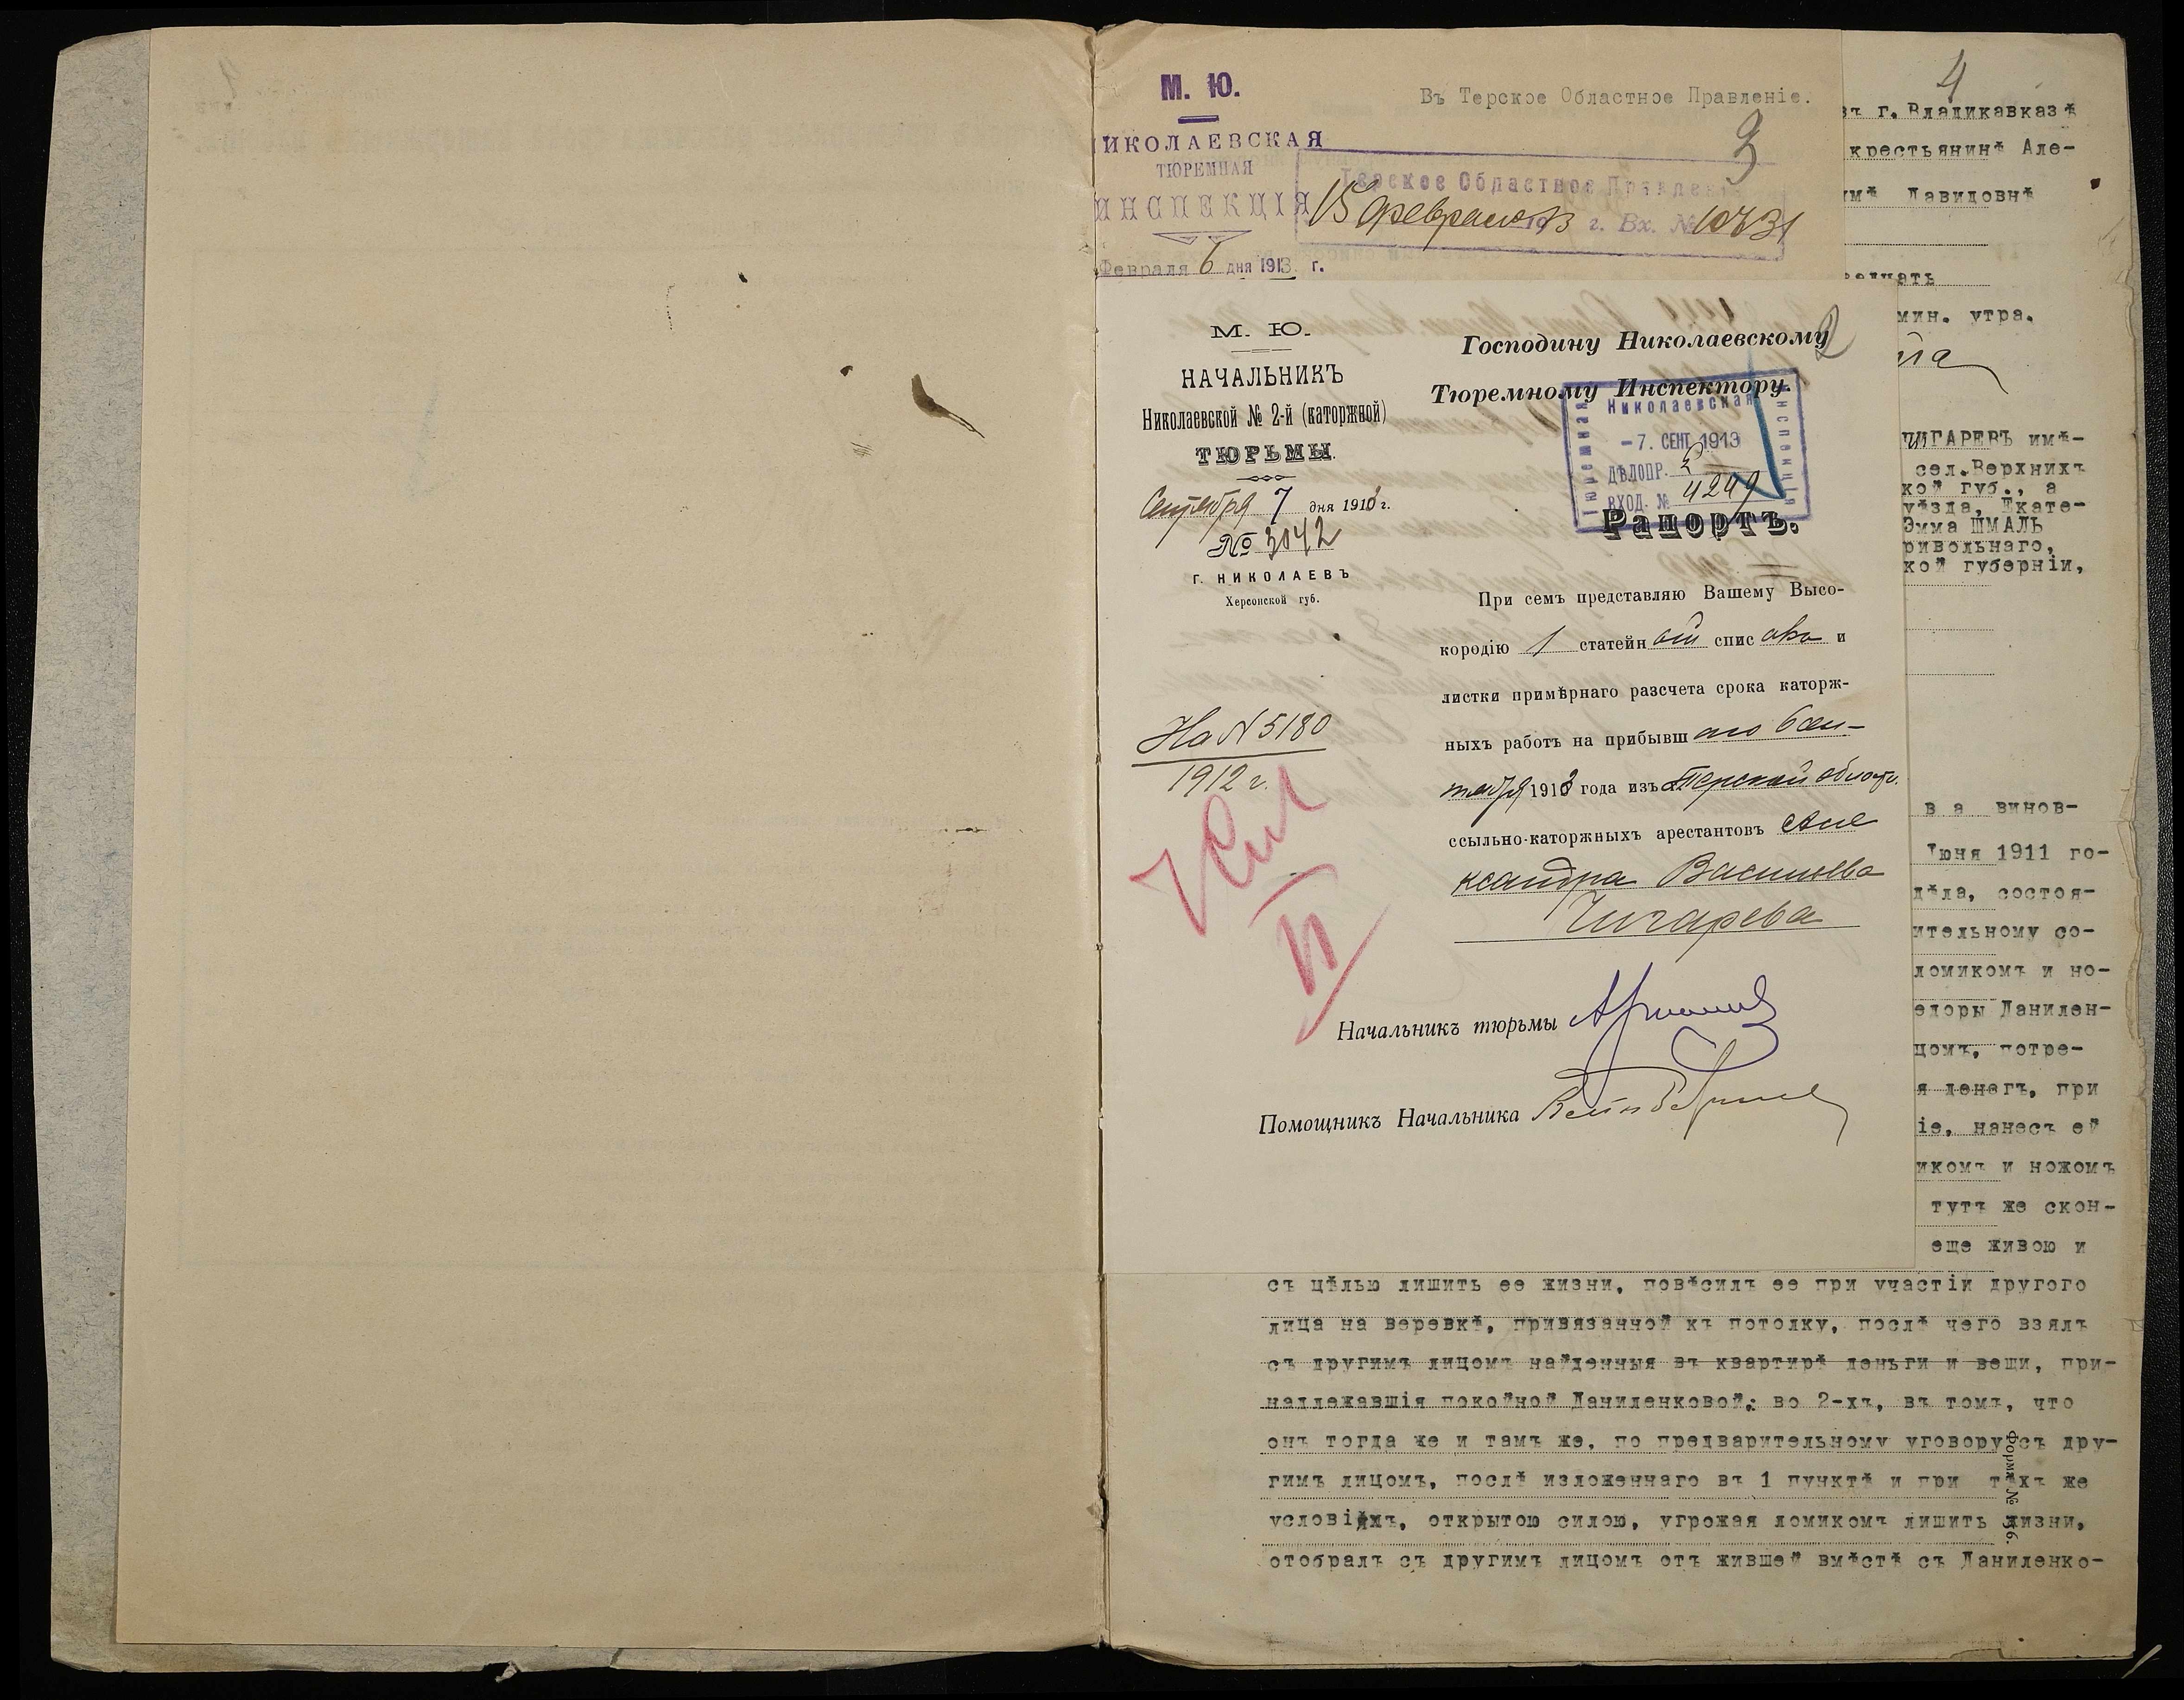 М. Ю.
НИКОЛАЕВСКАЯ
ТЮРЕМНАЯ
ИНСПЕКЦІЯ
Февраля 6 дня 1913 г.
Въ Терское Областное Правленіе.
3
Терское Областное Правленіе
15 февраля 1913 г. Вх. №
4
въ г. Владикавказѣ
крестьянинѣ Але-
Давидовнѣ
мин. утра.
ЧИГАРЕВЪ имѣ-
сел. Верхнихъ
кой губ., а
уѣзда, Екате-
Эмма ШМАЛЬ
ривольнаго,
кой губерніи,
в а винов-
Іюня 1911 го-
дѣла, состоя-
ительному со-
ломикомъ и но-
едоры Данилен-
цомъ, потре-
я денегъ, при
іе, нанесъ ей
икомъ и ножомъ
тутъ же скон-
еще живою и
М. Ю.
НАЧАЛЬНИКЪ
Николаевской № 2-й (каторжной)
ТЮРЬМЫ.
Сентября 7 дня 1913 г.
№ 3042
г. НИКОЛАЕВЪ
Херсонской губ.
На № 5180
1912 г.
2
Господину Николаевскому
Тюремному Инспектору.
Николаевская
Тюремная
Инспекція
- 7. СЕНТ 1913
ДѢЛОПР. 2
ВХОД. № 4249
Рапортъ.
При семъ представляю Вашему Высо-
кородію 1 статейн ый спис окъ и
листки примѣрнаго разсчета срока каторж-
ныхъ работъ на прибывш аго 6 сен-
тября 1913 года изъ Терской област.
ссыльно-каторжныхъ арестантовъ Але
ксандра Васильева
Чигарева
Начальникъ тюрьмы
Помощникъ Начальника
съ цѣлью лишить ее жизни, повѣсилъ ее при участіи другого
лица на веревкѣ, привязанной къ потолку, послѣ чего взялъ
съ другимъ лицомъ найденныя въ квартирѣ деньги и вещи, при-
надлежавшія покойной Даниленковой; во 2-хъ, въ томъ, что
онъ тогда же и тамъ же, по предварительному уговору съ дру-
гимъ лицомъ, послѣ изложеннаго въ 1 пунктѣ и при тѣхъ же
условіяхъ, открытою силою, угрожая ломикомъ лишить жизни,
отобралъ съ другимъ лицомъ отъ жившей вмѣстѣ съ Даниленко-